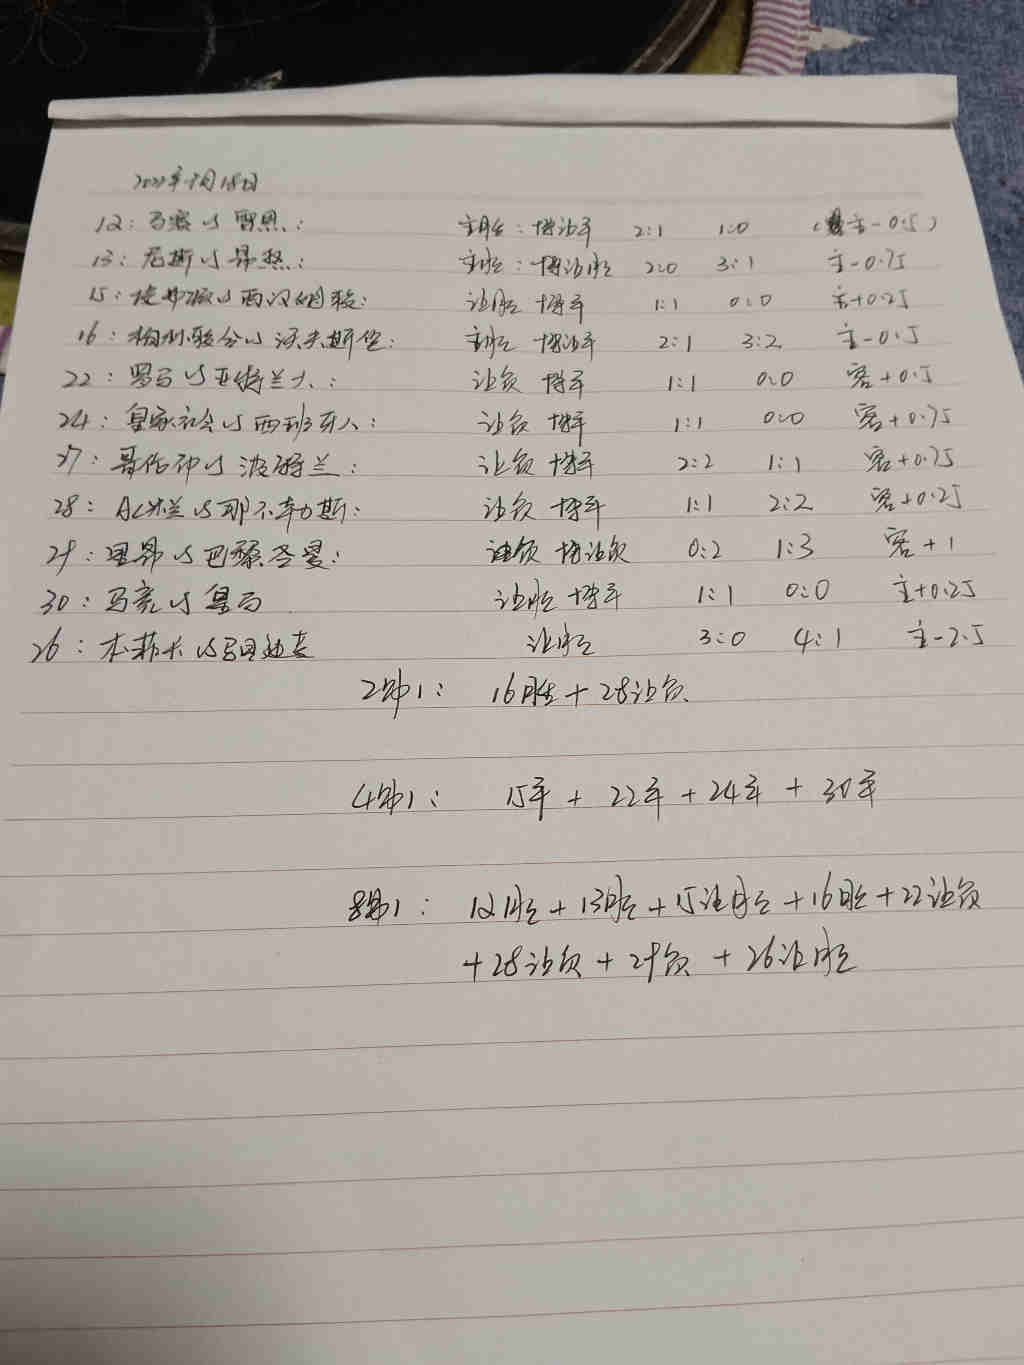 2022年9月18日
12：马赛VS雷恩： 主胜：博让平 2:1 1:0 (主-0.5)
13：尼斯VS昂热： 主胜：博让胜 2:0 3:1 主-0.75
15：埃弗顿VS西汉姆联： 让胜 博平 1:1 0:0 主+0.25
16：柏林联合VS沃夫斯堡： 主胜 博让平 2:1 3:2 主-0.5
22：罗马VS亚特兰大： 让负 博平 1:1 0:0 客+0.5
24：皇家社会VS西班牙人： 让负 博平 1:1 0:0 客+0.75
27：哥伦布VS波特兰： 让负 博平 2:2 1:1 客+0.75
28：AC米兰VS那不勒斯： 让负 博平 1:1 2:2 客+0.25
29：里昂VS巴黎圣曼： 让负 博让负 0:2 1:3 客+1
30：马竞VS皇马 让胜 博平 1:1 0:0 主+0.25
26：本菲卡VS 让胜 3:0 4:1 主-2.5
2串1： 16胜+28让负
4串1： 15平+22平+24平+30平
8串1： 12胜+13胜+15让胜+16胜+22让负
+28让负+29负+26让胜